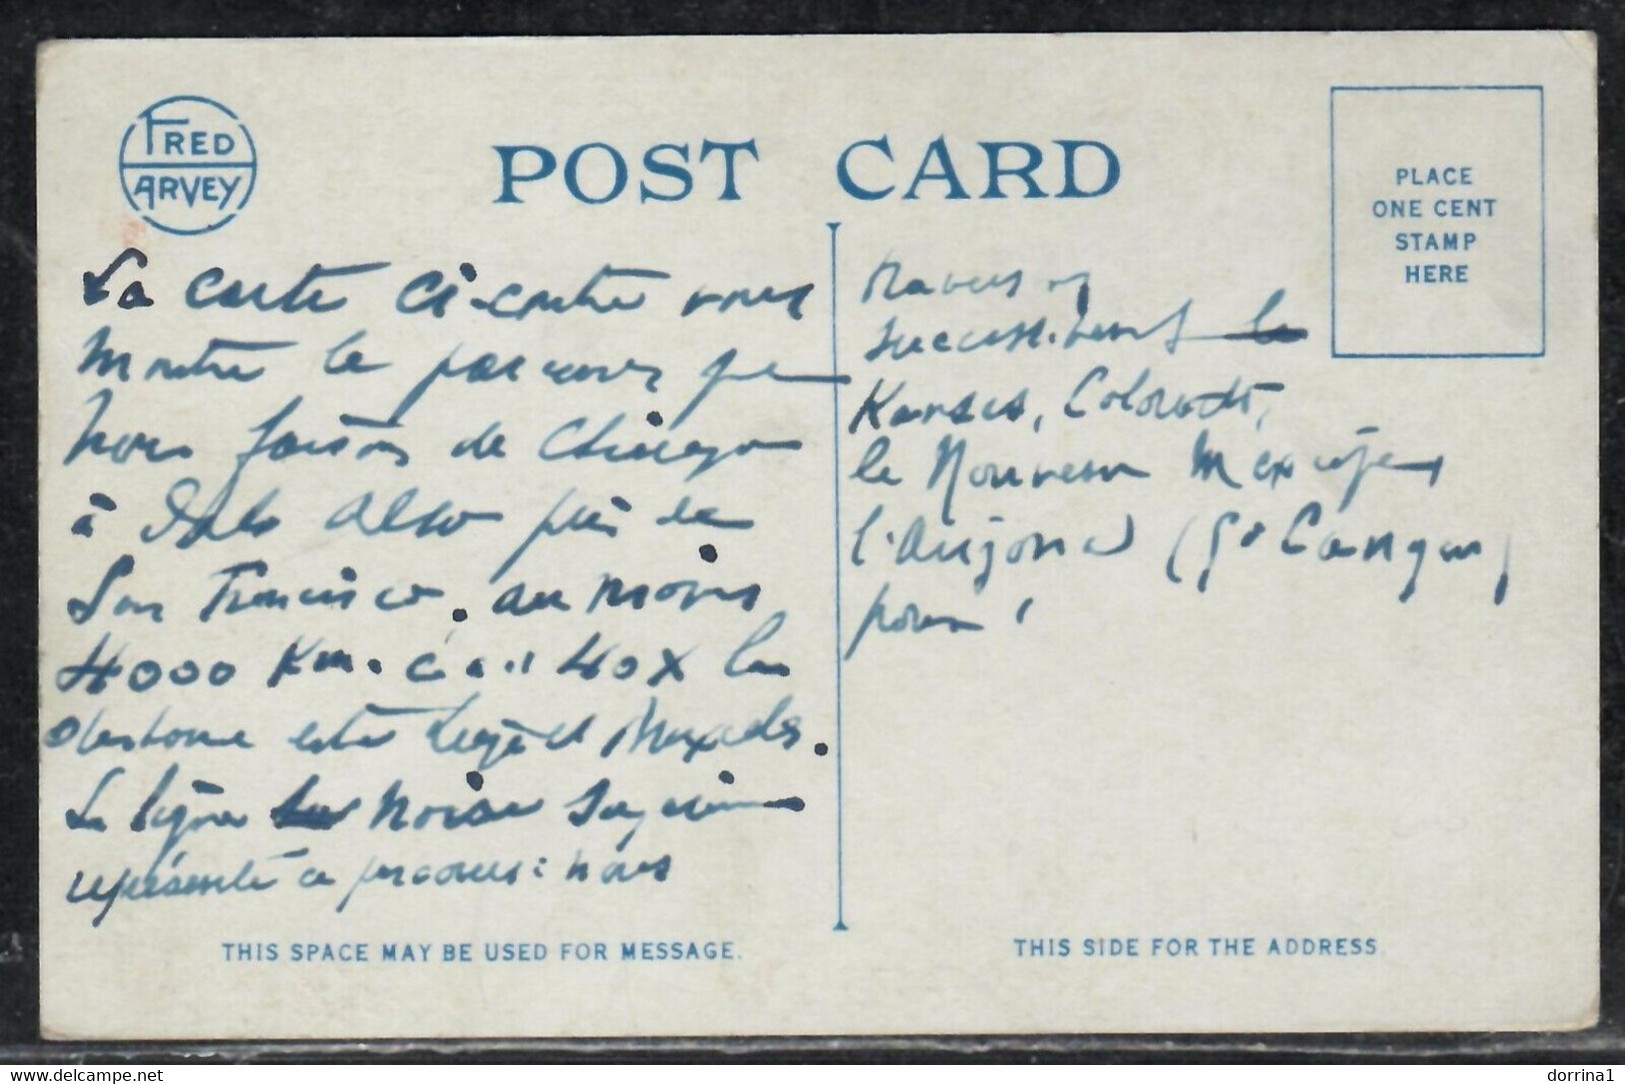 FRED
HARVEY
POST CARD
PLACE
ONE CENT
STAMP
HERE
La carte ci-contre vous
montre le parcours que
nous faisons de Chicago
à Palo Alto près de
San Francisco, au moins
4000 Km. c'est 40 x la
distance entre Liège et
La ligne noire
représente ce parcours : nous
traversons
successivement le
Kansas, Colorado,
le Nouveau Mexique,
l'Arizona (Gd Canyon)
pour
THIS SPACE MAY BE USED FOR MESSAGE.
THIS SIDE FOR THE ADDRESS
delcampe.net
dorrina1